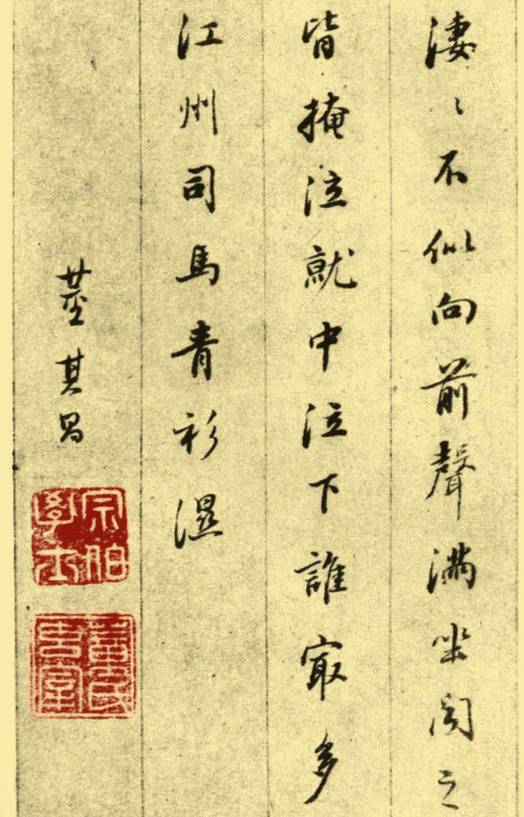 淒〻不似向前聲滿坐聞之
皆掩泣就中泣下誰冣多
江州司馬青衫濕
董其昌
宗伯學士
董氏玄宰